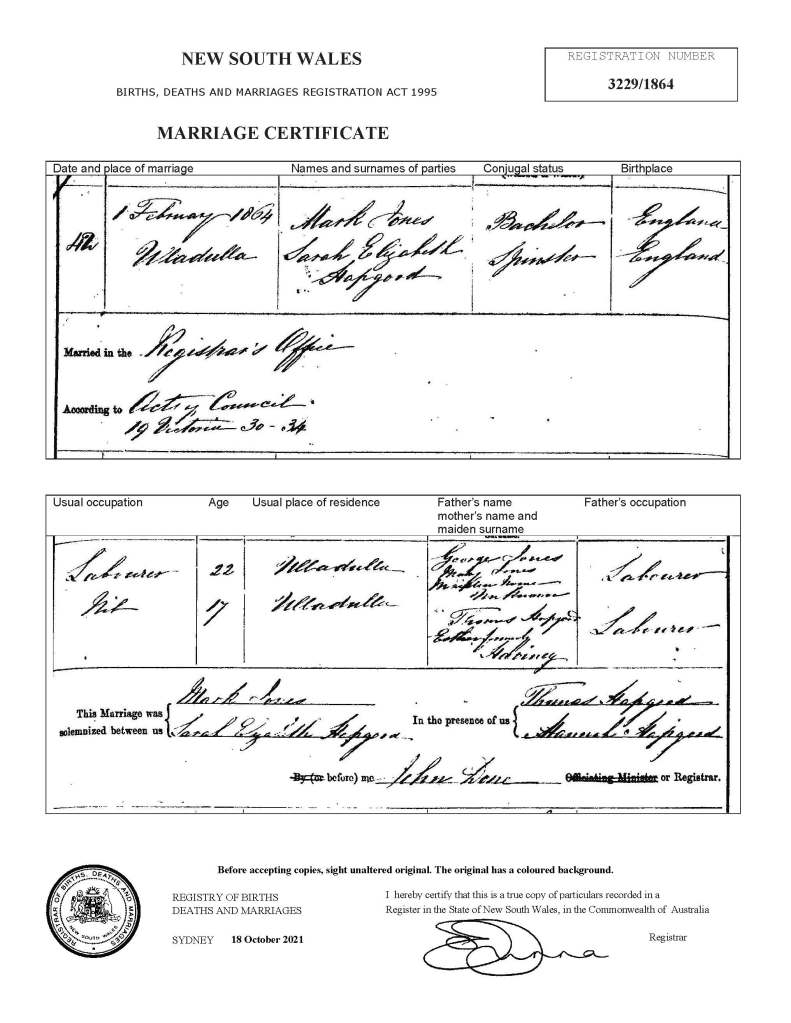 NEW SOUTH WALES
REGISTRATION NUMBER
3229/1864
BIRTHS, DEATHS AND MARRIAGES REGISTRATION ACT 1995
MARRIAGE CERTIFICATE
Date and place of marriage Names and surnames of parties Conjugal status Birthplace
1 February 1864 Mark Jones Bachelor England
42 Ulladulla Sarah Elizabeth Spinster England
Hapgood
Married in the Registrar's Office
According to Acts of Council
19 Victoria 30-34
Usual occupation Age Usual place of residence Father's name Father's occupation
mother's name and
maiden surname
Labourer 22 Ulladulla George Jones Labourer
Mary Jones
Maiden Name
Nil 17 Ulladulla Thomas Hapgood Labourer
Esther formerly
This Marriage was solemnized between us Mark Jones
Sarah Elizabeth Hapgood
In the presence of us Thomas Hapgood
Hannah Hapgood
By (or before) me John Done Officiating Minister or Registrar.
Before accepting copies, sight unaltered original. The original has a coloured background.
REGISTRY OF BIRTHS
DEATHS AND MARRIAGES
SYDNEY 18 October 2021
I hereby certify that this is a true copy of particulars recorded in a
Register in the State of New South Wales, in the Commonwealth of Australia
Registrar
REGISTRAR OF BIRTHS, DEATHS AND MARRIAGES
NEW SOUTH WALES